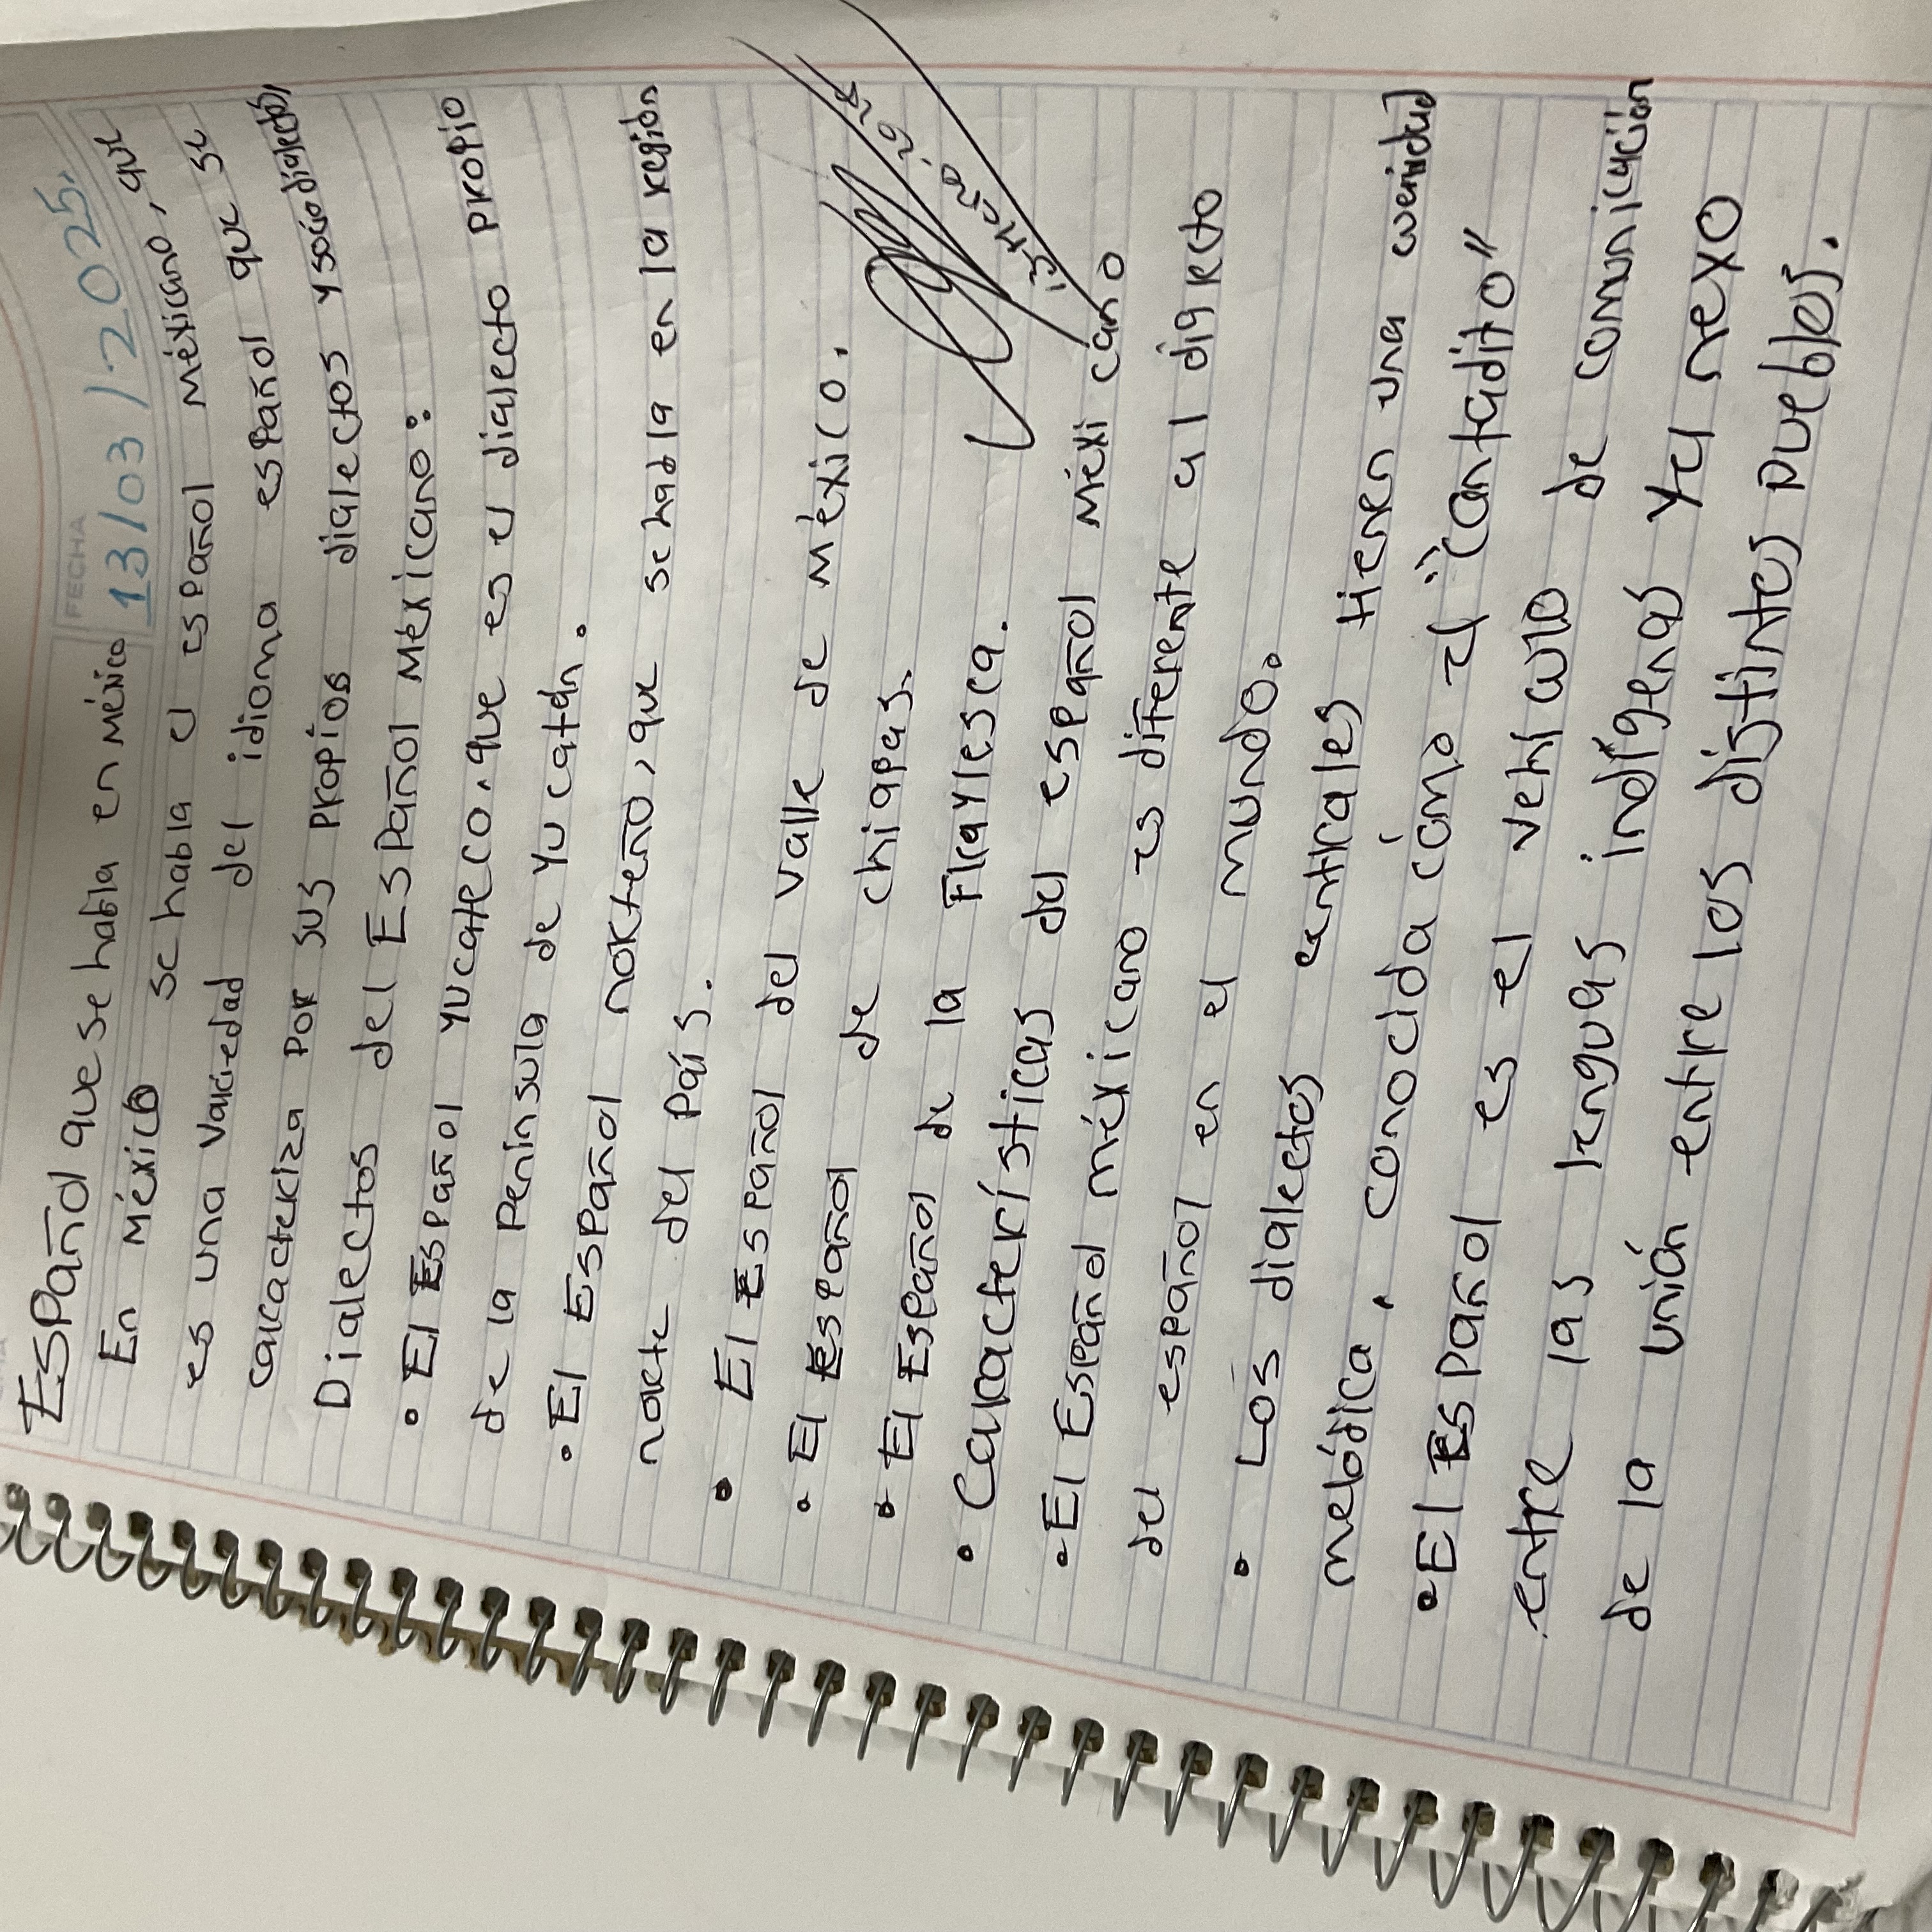 FECHA
13/03/2025.
Español que se habla en México
En México se habla el español méxicano, que
es una variedad del idioma español que se
caracteriza por sus propios dialectos y sociodialectos
Dialectos del Español Méxicano:
• El Español yucateco, que es el dialecto propio
de la Península de Yucatán.
• El Español norteño, que se habla en la región
norte del País.
• El Español del valle de México.
• El Español de chiapas.
• El Español de la Fraylesca.
• Características del español méxicano
• El Español méxicano es diferente al directo
del español en el mundo.
• Los dialectos centrales tienen una
melódica, conocida como el "Cantadito"
• El Español es el vehículo de comunicación
entre las lenguas indígenas y el nexo
de la unión entre los distintos pueblos.